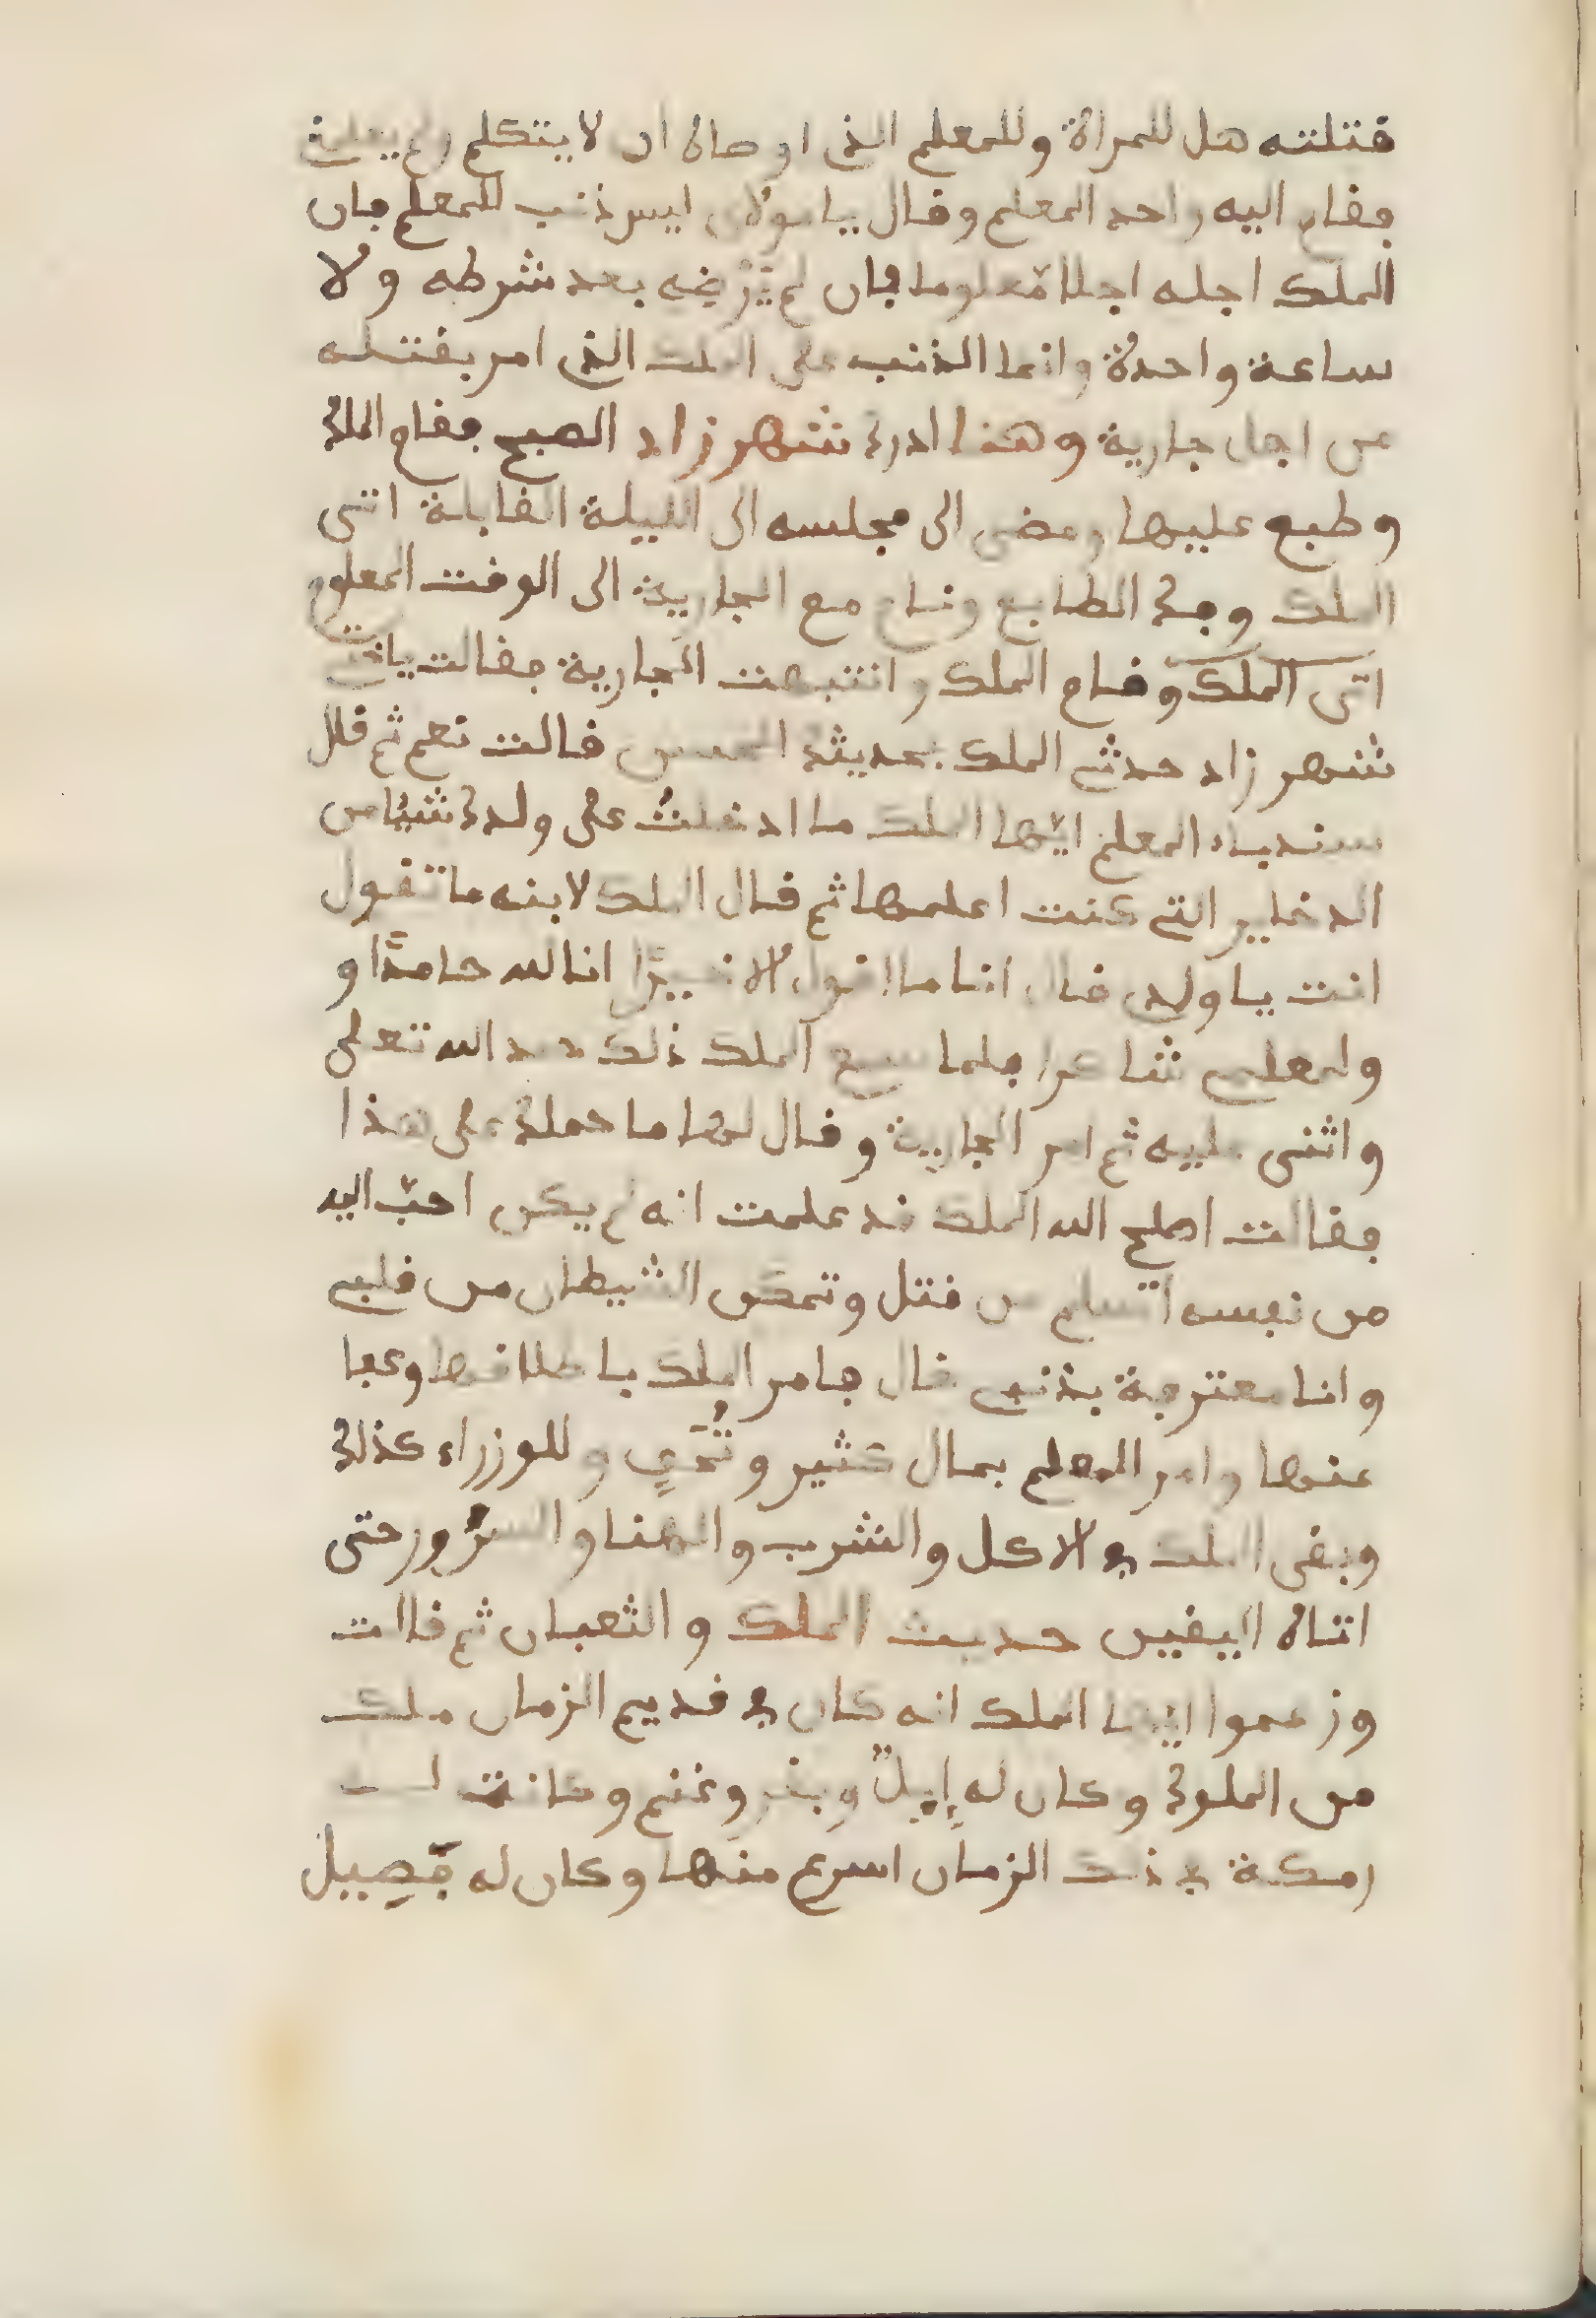 قتلته هل للمراة وللمعلم الذي اوصاه ان لا يتكلم ولم
فقام اليه واحد المعلم وقال يا مولاي ليس ذنب للمعلم فان
الملك اجله اجلا معلوما فان لم بعد شرطه ولا
ساعة واحدة وانما الذنب على الملك الذي امر بقتله
من اجل جارية وهنا ادرك شهرزاد الصبح فقام الملك
وطبع عليها ومضى الى مجلسه الى الليلة القابلة اتى
الملك وفك الطابع ونام مع الجارية الى الوقت المعلوم
اتى الملك وقام الملك وانتبهت الجارية فقالت يا
شهر زاد حدثي الملك بحديثك الحسن قالت نعم ثم قال
سندباد المعلم ايّها الملك ما ادخلتُ على ولدك شيئا من
الدخاير التي كنت اعلمها ثم قال الملك لابنه ما تقول
انت يا ولدي قال انا ما اقول الا خيرًا انا لله حامدًا و
ولمعلمي شاكرا فلما سمع الملك ذلك حمد الله تعلى
واثنى عليه ثم امر الجارية وقال لها ما حملك على هذا
فقالت اصلح الله الملك قد علمت انه لم يكن احبّ اليه
من نفسه اتسلم من قتل وتمكن الشيطان من قلبي
وانا معترفة بذنبي قال فامر الملك باطلاقها وعفا
عنها وامر المعلم بمال كثير و وللوزراء كذلك
وبقى الملك في الاكل والشرب والهنا والسرُور حتى
اتاه اليقين حديث الملك والثعبان ثم قالت
وزعموا ايّها الملك انه كان في قديم الزمان ملك
من الملوك وكان له إبلٌ وبقر وغنم وكانت له
رمكة في ذلك الزمان اسرع منها وكان له فَصِيل